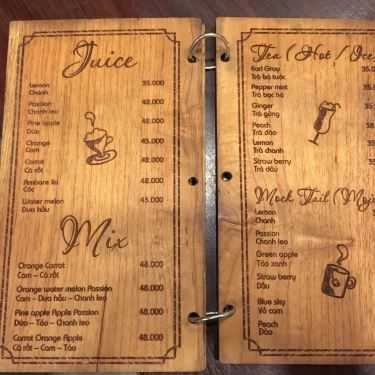 Juice
Lemon 35.000
Chanh
Passion 48.000
Chanh leo
Pine apple 48.000
Dứa
Orange 48.000
Cam
Carrot 48.000
Cà rốt
48.000
Cóc
Water melon 45.000
Dưa hấu
Mix
Orange Carrot 48.000
Cam - Cà rốt
Orange water melon Passion 48.000
Cam - Dưa hấu - Chanh leo
Pine apple Apple Passion 48.000
Dứa - Táo - Chanh leo
Carrot Orange Apple 48.000
Cà rốt - Cam - Táo
Tea (Hot / Ice
Earl Gray
Trà bá tước
Pepper mint
Trà bạc hà
Ginger
Trà gừng
Peach
Trà đào
Lemon
Trà chanh
Straw berry
Trà dâu
Mock Tail (Moji
Lemon
Chanh
Passion
Chanh leo
Green apple
Táo xanh
Straw berry
Dâu
Blue sky
Vỏ cam
Peach
Đào